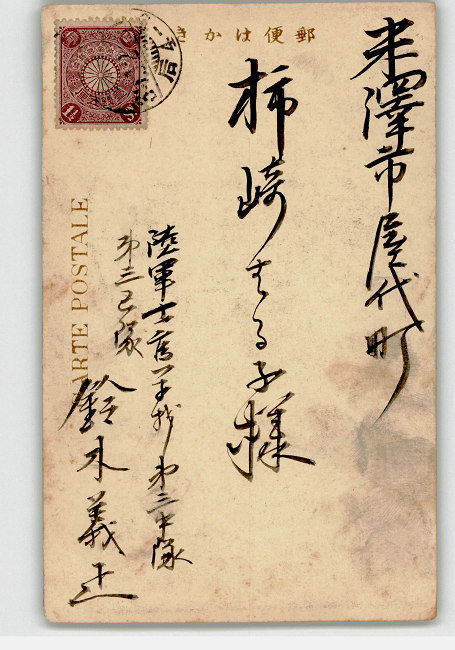 郵便はかき
米澤市屋代町
柿崎はる子様
陸軍士官学校第三中隊
第三区隊
鈴木義正
CARTE POSTALE
1½